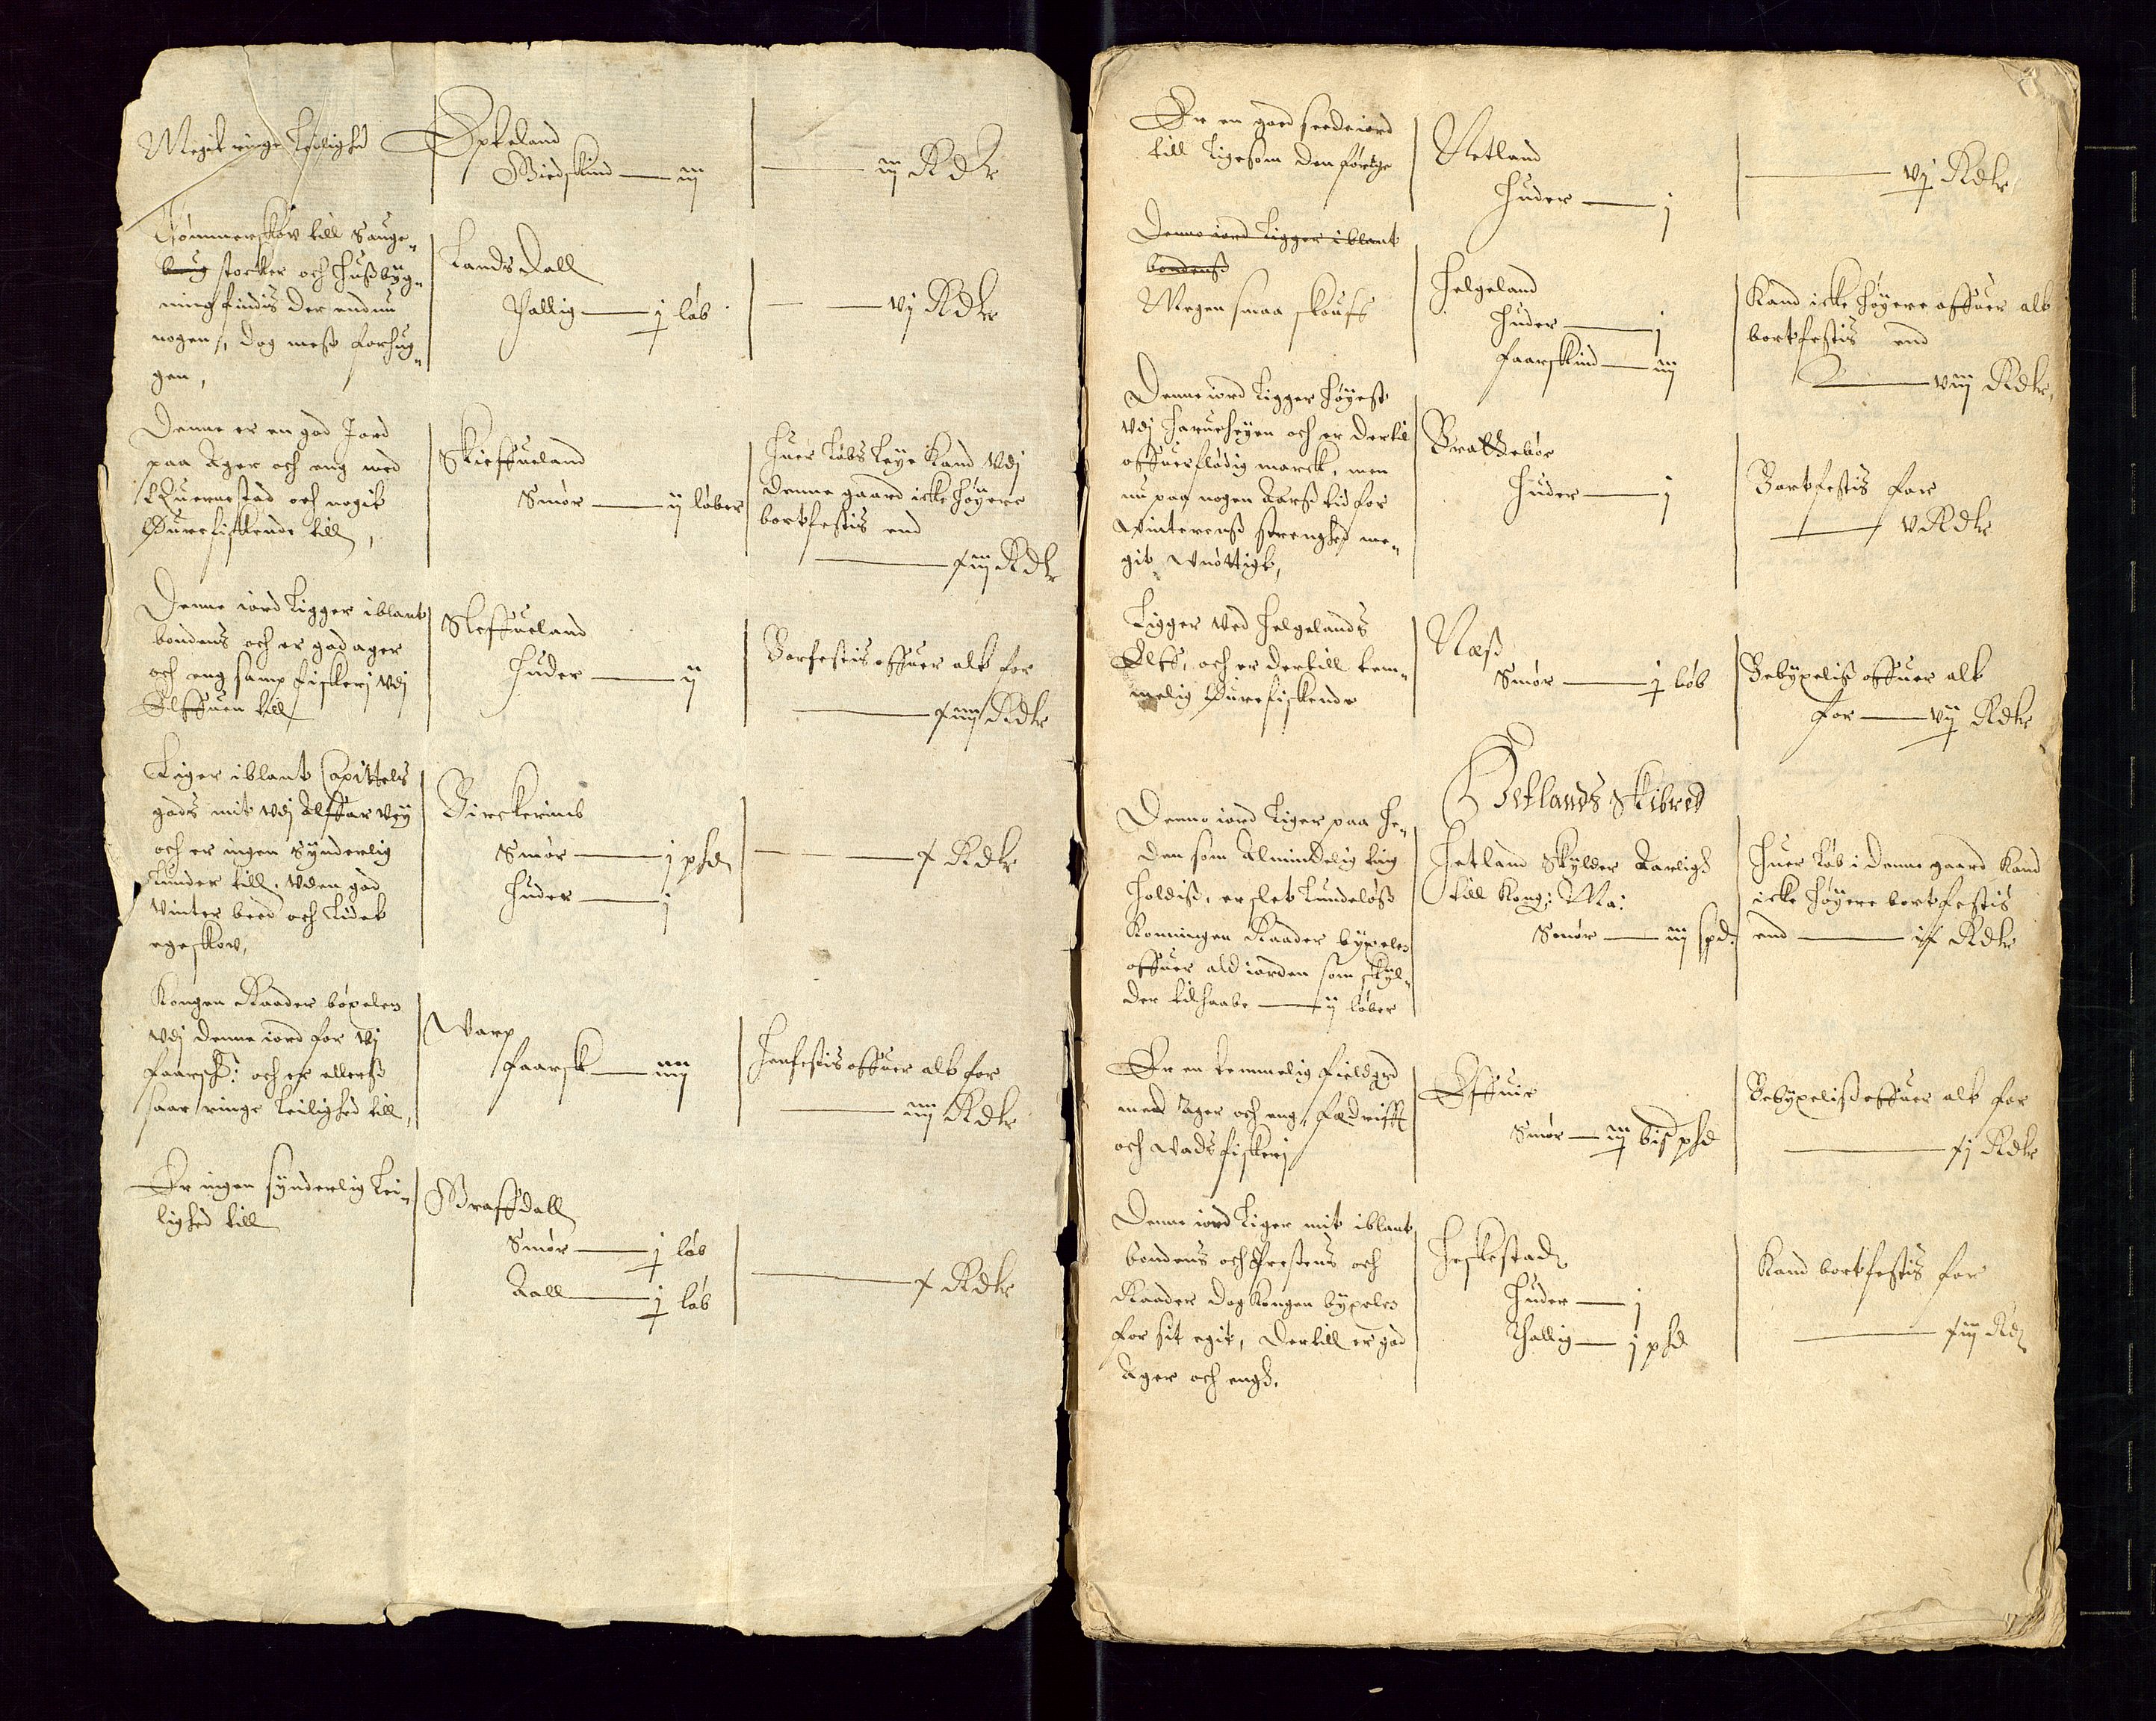 Megit ringe Leilighd
Øpkeland
Giedskind — iij
— iij Rdlr
Tømmerskov till Sauge-
stocker och Hußbÿg-
ning findis der endnu
nogen, dog mest forhug-
gen,
Landsdall
Thallig — j løb
— vj Rdlr
Denne er en god Jord
paa Ager och eng med
Querнested och nogit
Ørrefiskende till,
Skieffueland
Smør — ij løber
Huer Løbs Leÿe kand vdj
denne gaard icke høÿere
bortfestis end
— xiij Rdlr
Denne iord Ligger iblant
bondens och er god ager
och eng samp fiskerj vdj
Elffuen till
Sleffueland
Huder — ij
Borfestis offuer alt for
— xiiij Rdlr
Liger iblant Capittels
gods mit vdj Alffar veÿ
och er ingen sÿnderlig
Lunder till, vden god
vinter beed och Lidet
egeskov,
Birckerimb
Smør — j phd
Huder — j
— x Rdlr
Kongen Raader bøxelen
vdj denne iord for vj
faarsk: och er ellerß
saar ringe Leilighed till,
Warp
faarsk — iiij
Henfestis offuer alt for
— iiij Rdlr
Er ingen sÿnderlig Lei-
lighed till
Graffdall
Smør — j løb
Aall — j løb
— x Rdlr
Er en god seedeiord
till Ligesom den førige
Netland
Huder — j
— vj Rdlr
Denne iord Ligger iblant
bondenß
Megen smaa skouff
Helgeland
Huder — j
faarskind — iij
Kand icke høÿere offuer alt
bortfestis end
— viij Rdlr
Denne iord Ligger høÿest
vdj harueheÿen och er dertil
offuerflødig marck, men
nu paa nogen Aarß tid for
Vinterenß strenghed me-
git vnøttigt,
Brattebør
Huder — j
Bortfestis for
— v Rdlr
Ligger ved Helgelands
Elff, och er dertill tem-
melig Ørrefiskende
Næß
Smør — j løb
Bebÿxeliß offuer alt
for — vij Rdlr
Hetlands Skibred
Denne iord Liger paa He-
den som Almindelig ting
holdiß, er slet Lundeløß
Konningen Raader bÿxelen
offuer ald iorden som skÿl-
der tilhaabe — ij løber
Hetland Skÿlder Aarligd
till Kong: Ma:
Smør — iij spd:
Huer Løb i denne gaard kand
icke høÿere bortfestis
end — ix Rdlr
Er en temmelig fieldgrd
med Ager och eng, fædrifft
och vadsfiskerj
Effuie
Smør — iij bis phd
Bebÿxeliß offuer alt for
— xj Rdlr
Denne iord Liger mit iblant
bondens och Prestens och
Raader dog Kongen bÿxelen
for sit egit, dertill er god
Ager och engd,
Heskestad
Huder — j
Thallig — j phd
Kand bortfestis for
— xiij Rd